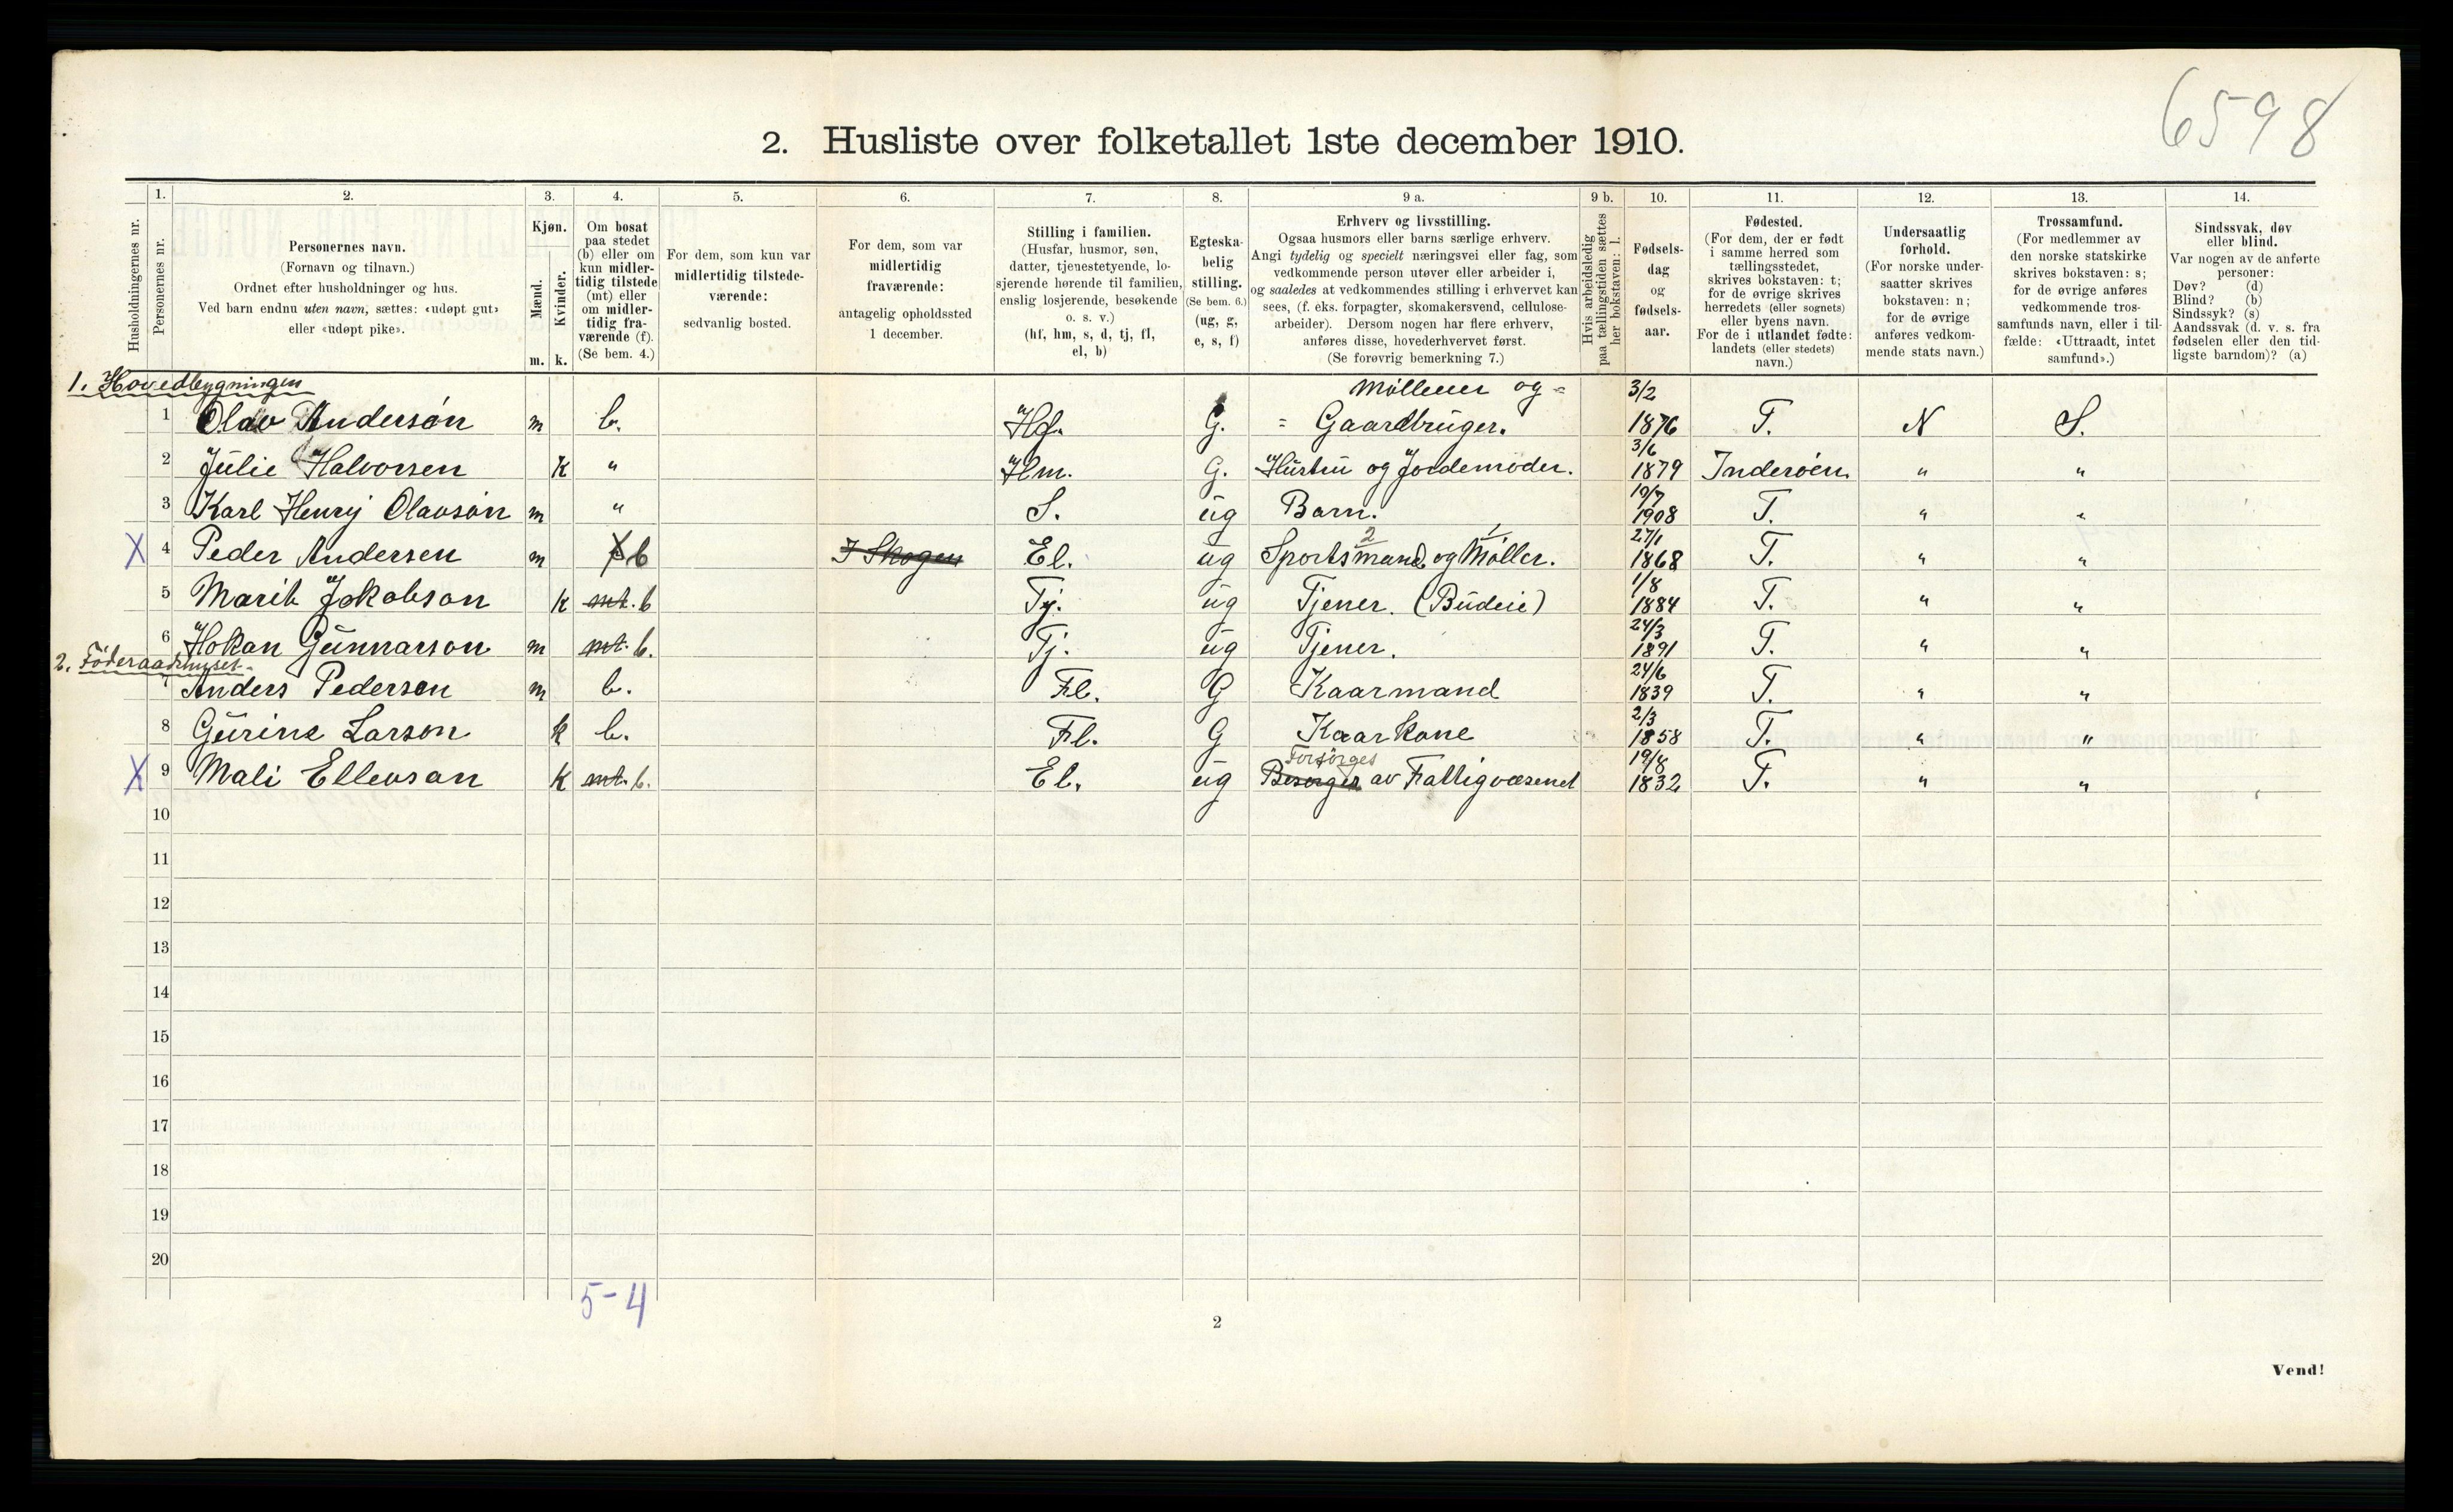 6598
2. Husliste over folketallet 1ste december 1910.
Husholdningernes nr.
1.
Personernes nr.
2.
Personernes navn.
(Fornavn og tilnavn.)
Ordnet efter husholdninger og hus.
Ved barn endnu uten navn, sættes: «udøpt gut»
eller «udøpt pike».
3.
Kjøn.
Mænd.
Kvinder.
m. k.
4.
Om bosat
paa stedet
(b) eller om
kun midler-
tidig tilstede
(mt) eller
om midler-
tidig fra-
værende (f).
(Se bem. 4.)
5.
For dem, som kun var
midlertidig tilstede-
værende:
sedvanlig bosted.
6.
For dem, som var
midlertidig
fraværende:
antagelig opholdssted
1 december.
7.
Stilling i familien.
(Husfar, husmor, søn,
datter, tjenestetyende, lo-
sjerende hørende til familien,
enslig losjerende, besøkende
o. s. v.)
(hf, hm, s, d, tj, fl,
el, b)
8.
Egteska-
belig
stilling.
(Se bem. 6.)
(ug, g,
e, s, f)
9 a.
Erhverv og livsstilling.
Ogsaa husmors eller barns særlige erhverv.
Angi tydelig og specielt næringsvei eller fag, som
vedkommende person utøver eller arbeider i,
og saaledes at vedkommendes stilling i erhvervet kan
sees, (f. eks. forpagter, skomakersvend, cellulose-
arbeider). Dersom nogen har flere erhverv,
anføres disse, hovederhvervet først.
(Se forøvrig bemerkning 7.)
9 b.
Hvis arbeidsledig
paa tællingstiden sættes
her bokstaven: l.
10.
Fødsels-
dag
og
fødsels-
aar.
11.
Fødested.
(For dem, der er født
i samme herred som
tællingsstedet,
skrives bokstaven: t;
for de øvrige skrives
herredets (eller sognets)
eller byens navn.
For de i utlandet fødte:
landets (eller stedets)
navn.)
12.
Undersaatlig
forhold.
(For norske under-
saatter skrives
bokstaven: n;
for de øvrige
anføres vedkom-
mende stats navn.)
13.
Trossamfund.
(For medlemmer av
den norske statskirke
skrives bokstaven: s;
for de øvrige anføres
vedkommende tros-
samfunds navn, eller i til-
fælde: «Uttraadt, intet
samfund».)
14.
Sindssvak, døv
eller blind.
Var nogen av de anførte
personer:
Døv? (d)
Blind? (b)
Sindssyk? (s)
Aandssvak (d. v. s. fra
fødselen eller den tid-
ligste barndom)? (a)
1. Hovedbygningen
Møllener og =
3/2
1 Olav Andersón m b. Hf. G. = Gaardbruger. 1876 T. N S.
3/6
2 Julie Halvorsen K " Hm. G. Hustru og Jordemoder. 1879 Inderøen. " "
19/7
3 Karl Henry Olavsón m " S. ug Barn. 1908 T. " "
2 1 27/1
X 4 Peder Andersen m f b I Skogen El. ug Sportsmand og Møller. 1868 T. " "
1/8
5 Marit Jakobson k mt. b Tj. ug Tjener. (Budeie) 1884 T. " "
24/3
6 Hokan Gunnarson m mt. b. Tj. ug Tjener. 1891 T. " "
2. Föderaadshuset
24/6
7 Anders Pedersen m b. Fl. G Kaarmand 1839 T. " "
2/3
8 Gurine Larson k b. Fl. G Kaarkone 1858 T. " "
Forsørges 19/8
X 9 Mali Ellevsan K mt. b. El. ug Besørges av Fattigvæsenet 1832 T. " "
10
11
12
13
14
15
16
17
18
19
20
5-4
2
Vend!